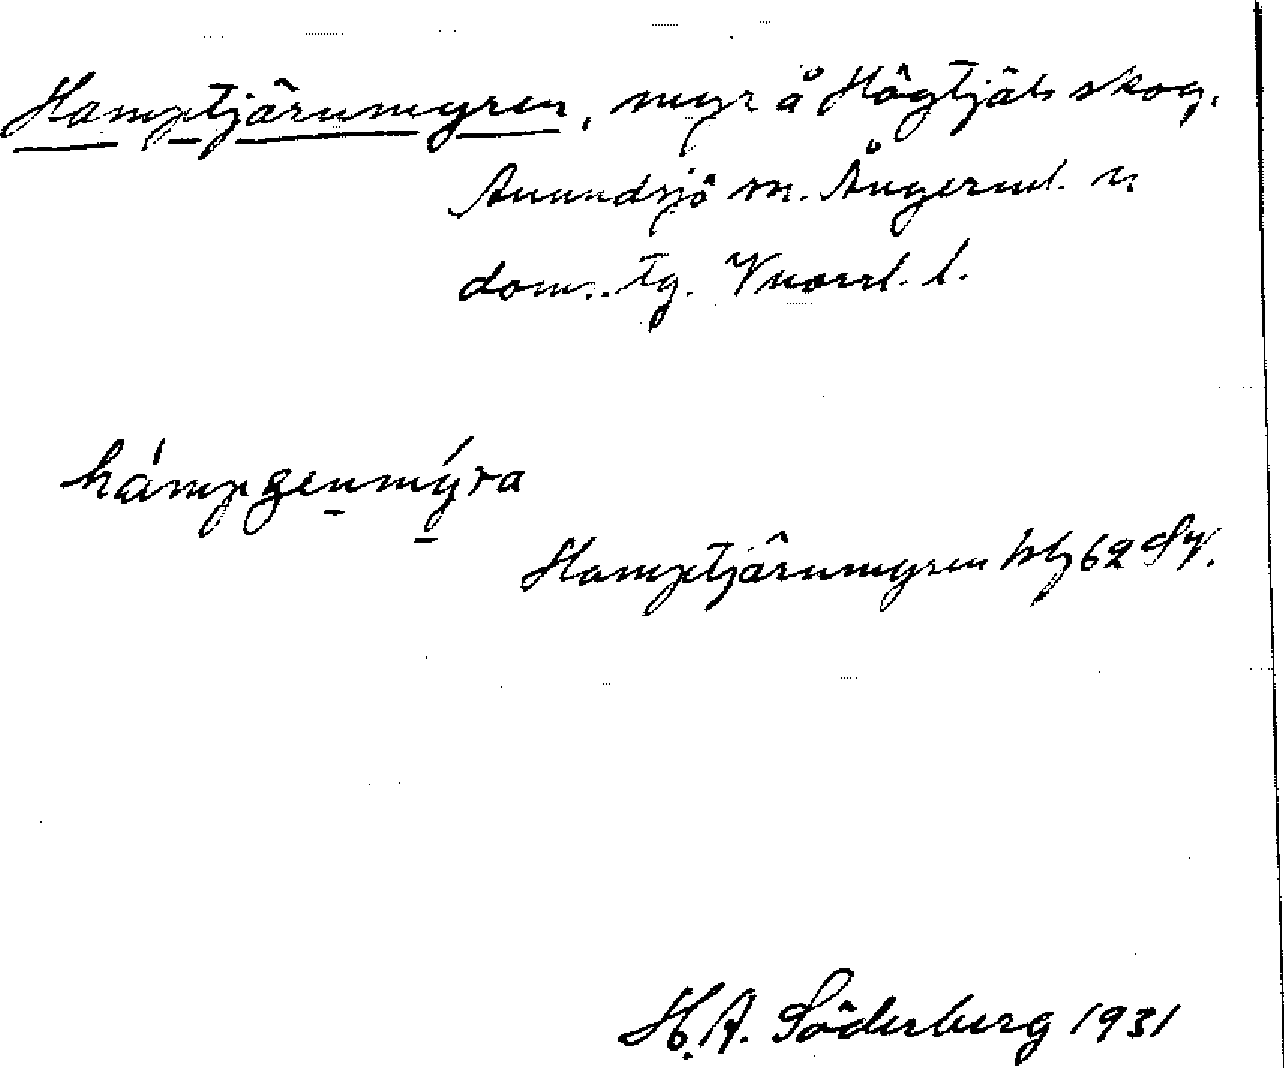 Hamptjärnmyren, myr å Högtjäls skog.
Anundsjö sn. Ångerml. n
doms. tg. Vnorrl. l.
hámpgenmýra
Hamptjärnmyren hbl 62 SV.
H.A. Söderberg 1931